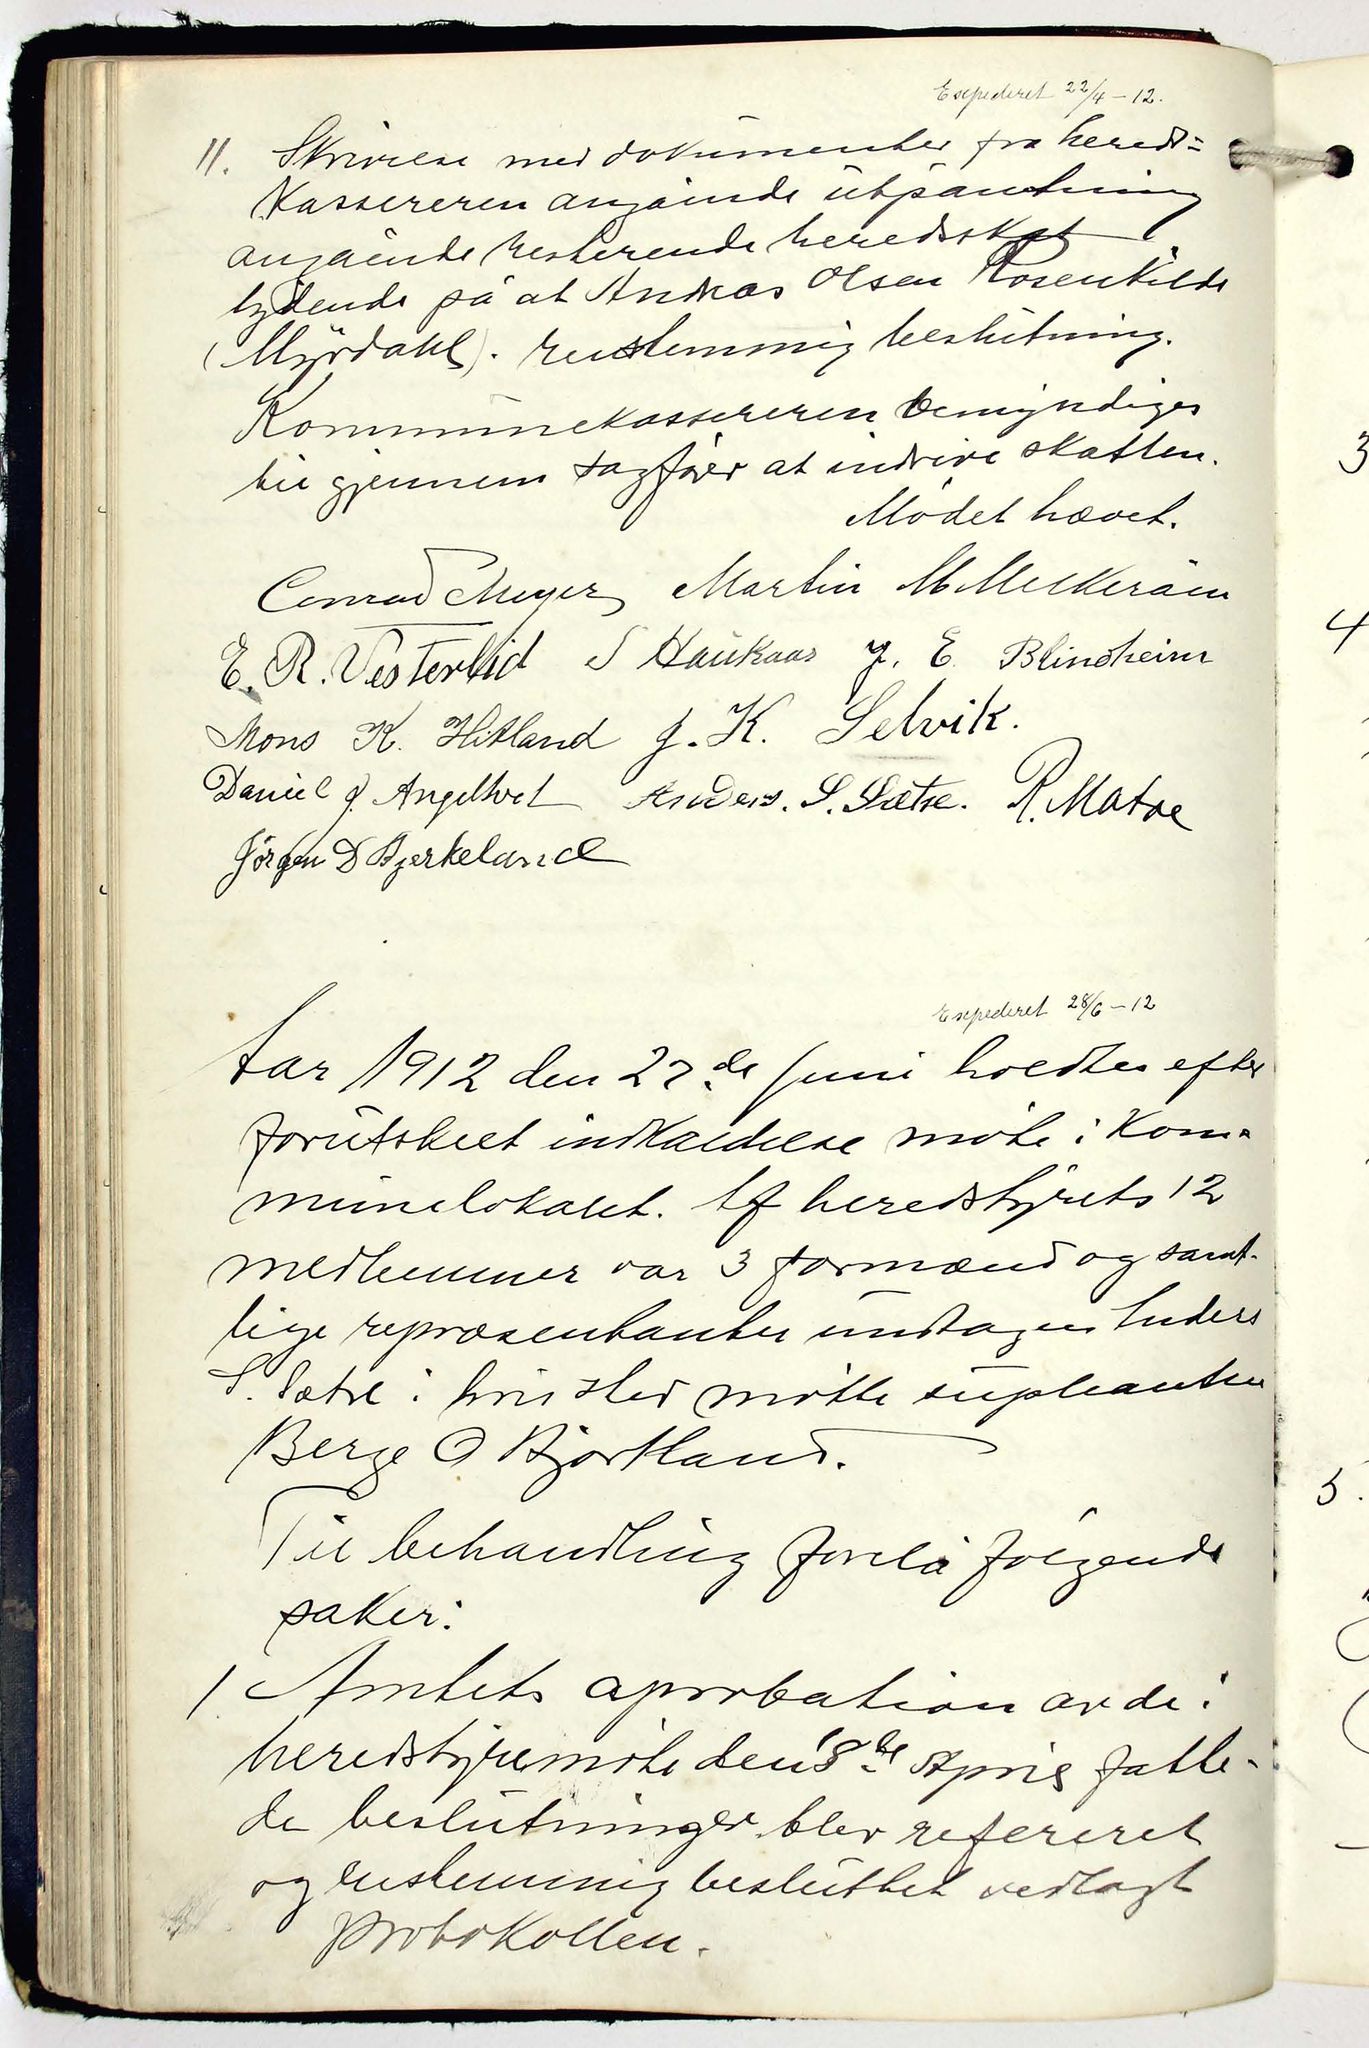 Expederet 22/4 - 12.
11. Skrivelse med dokumenter fra hereds=
kassereren angående utpantning
angående resterende heredsskat
lydende på at Andreas Olsen Rosenkilde
(Myrdahl). Enstemmig beslutning.
Kommunekassereren bemyndiges
til gjennem sagfører at indrive skatten.
Mödet hævet.
Conrad Meyer Martin M Melkeråen
E. R. Vesterlid S Haukaas J. E. Blindheim
Mons K. Hitland J. K. Selvik.
Daniel J. Angeltvet Anders. S. Sætre. R. Matre
Jörgen D Bjerkeland
Expederet 28/6 - 12
Aar 1912 den 27de juni holdtes efter
forutskeet indkaldelse møte i Kom-
munelokalet. Af heredstyrets 12
medlemmer var 3 formænd og samt-
lige repræsentanter undtagen Anders
S. Sætre i hvis sted møtte supleanten
Berge O Bjortland.
Til behandling forelå følgende
saker:
1. Amtets aprobation av de i
heredstyremøte den 18de April fatte-
de beslutninger blev refereret
og enstemmig besluttet vedlagt
protokollen.
3
4
5.